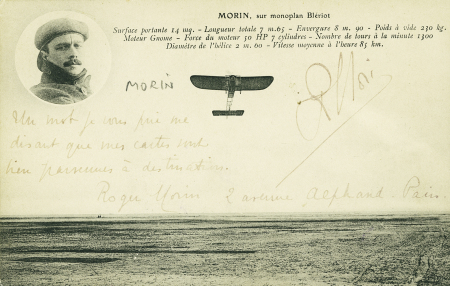 MORIN, sur monoplan Blériot
Surface portante 14 mq. - Longueur totale 7 m.65 - Envergure 8 m. 90 - Poids à vide 230 kg.
Moteur Gnome - Force du moteur 50 HP 7 cylindres - Nombre de tours à la minute 1300
Diamètre de l'hélice 2 m. 60 - Vitesse moyenne à l'heure 85 km.
MORIN
R Morin
Un mot je vous prie me
disant que mes cartes sont
bien parvenues à destination.
Roger Morin 2 avenue Alphand. Paris.